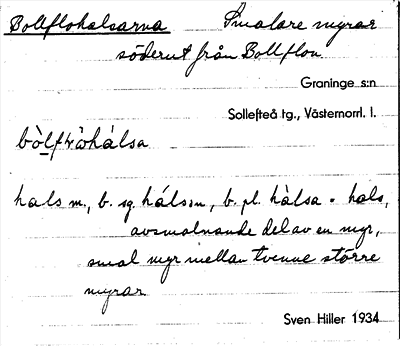 Bollflohalsarna Smalare myrar
söderut från Bollflon
Graninge s:n
Sollefteå tg., Västernorrl. l.
hals m., b. sg. hálsɪn, b. pl. hàlsa = hals,
avsmalnande del av en myr,
smal myr mellan tvenne större
myrar
Sven Hiller 1934